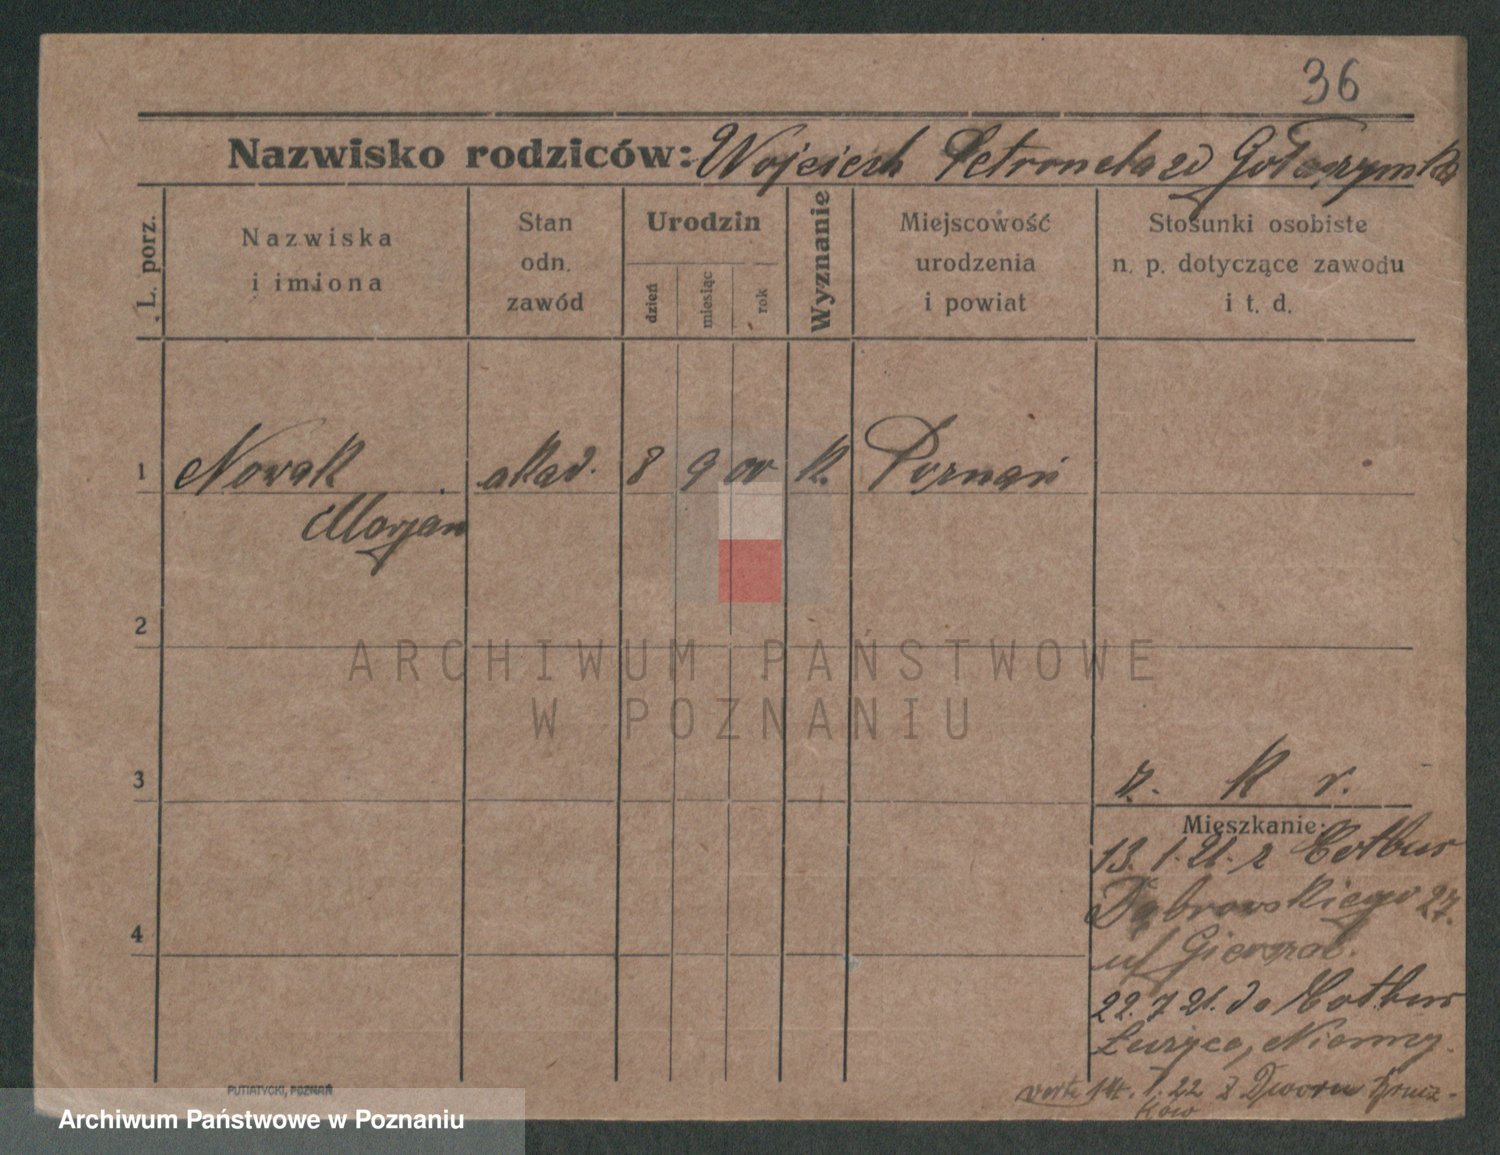 36
Nazwisko rodziców: Wojciech Petronela zd
L. porz.
Nazwiska
i imiona
Stan
odn.
zawód
Urodzin
dzień
miesiąc
rok
Wyznanie
Miejscowość
urodzenia
i powiat
Stosunki osobiste
n. p. dotyczące zawodu
i t. d.
1 Nowak akad. 8 9 00 k. Poznań
Marjan
2
ARCHIWUM PAŃSTWOWE
W POZNANIU
3
r. k r.
Mieszkanie:
13. 1. 21. z Cotbus
Dąbrowskiego 27.
u/
4
22. 7 21. do Cotbus
Łużyce, Niemcy.
verte 14. 7. 22 z Dworu
ków
PUTIATYCKI, POZNAŃ
Archiwum Państwowe w Poznaniu